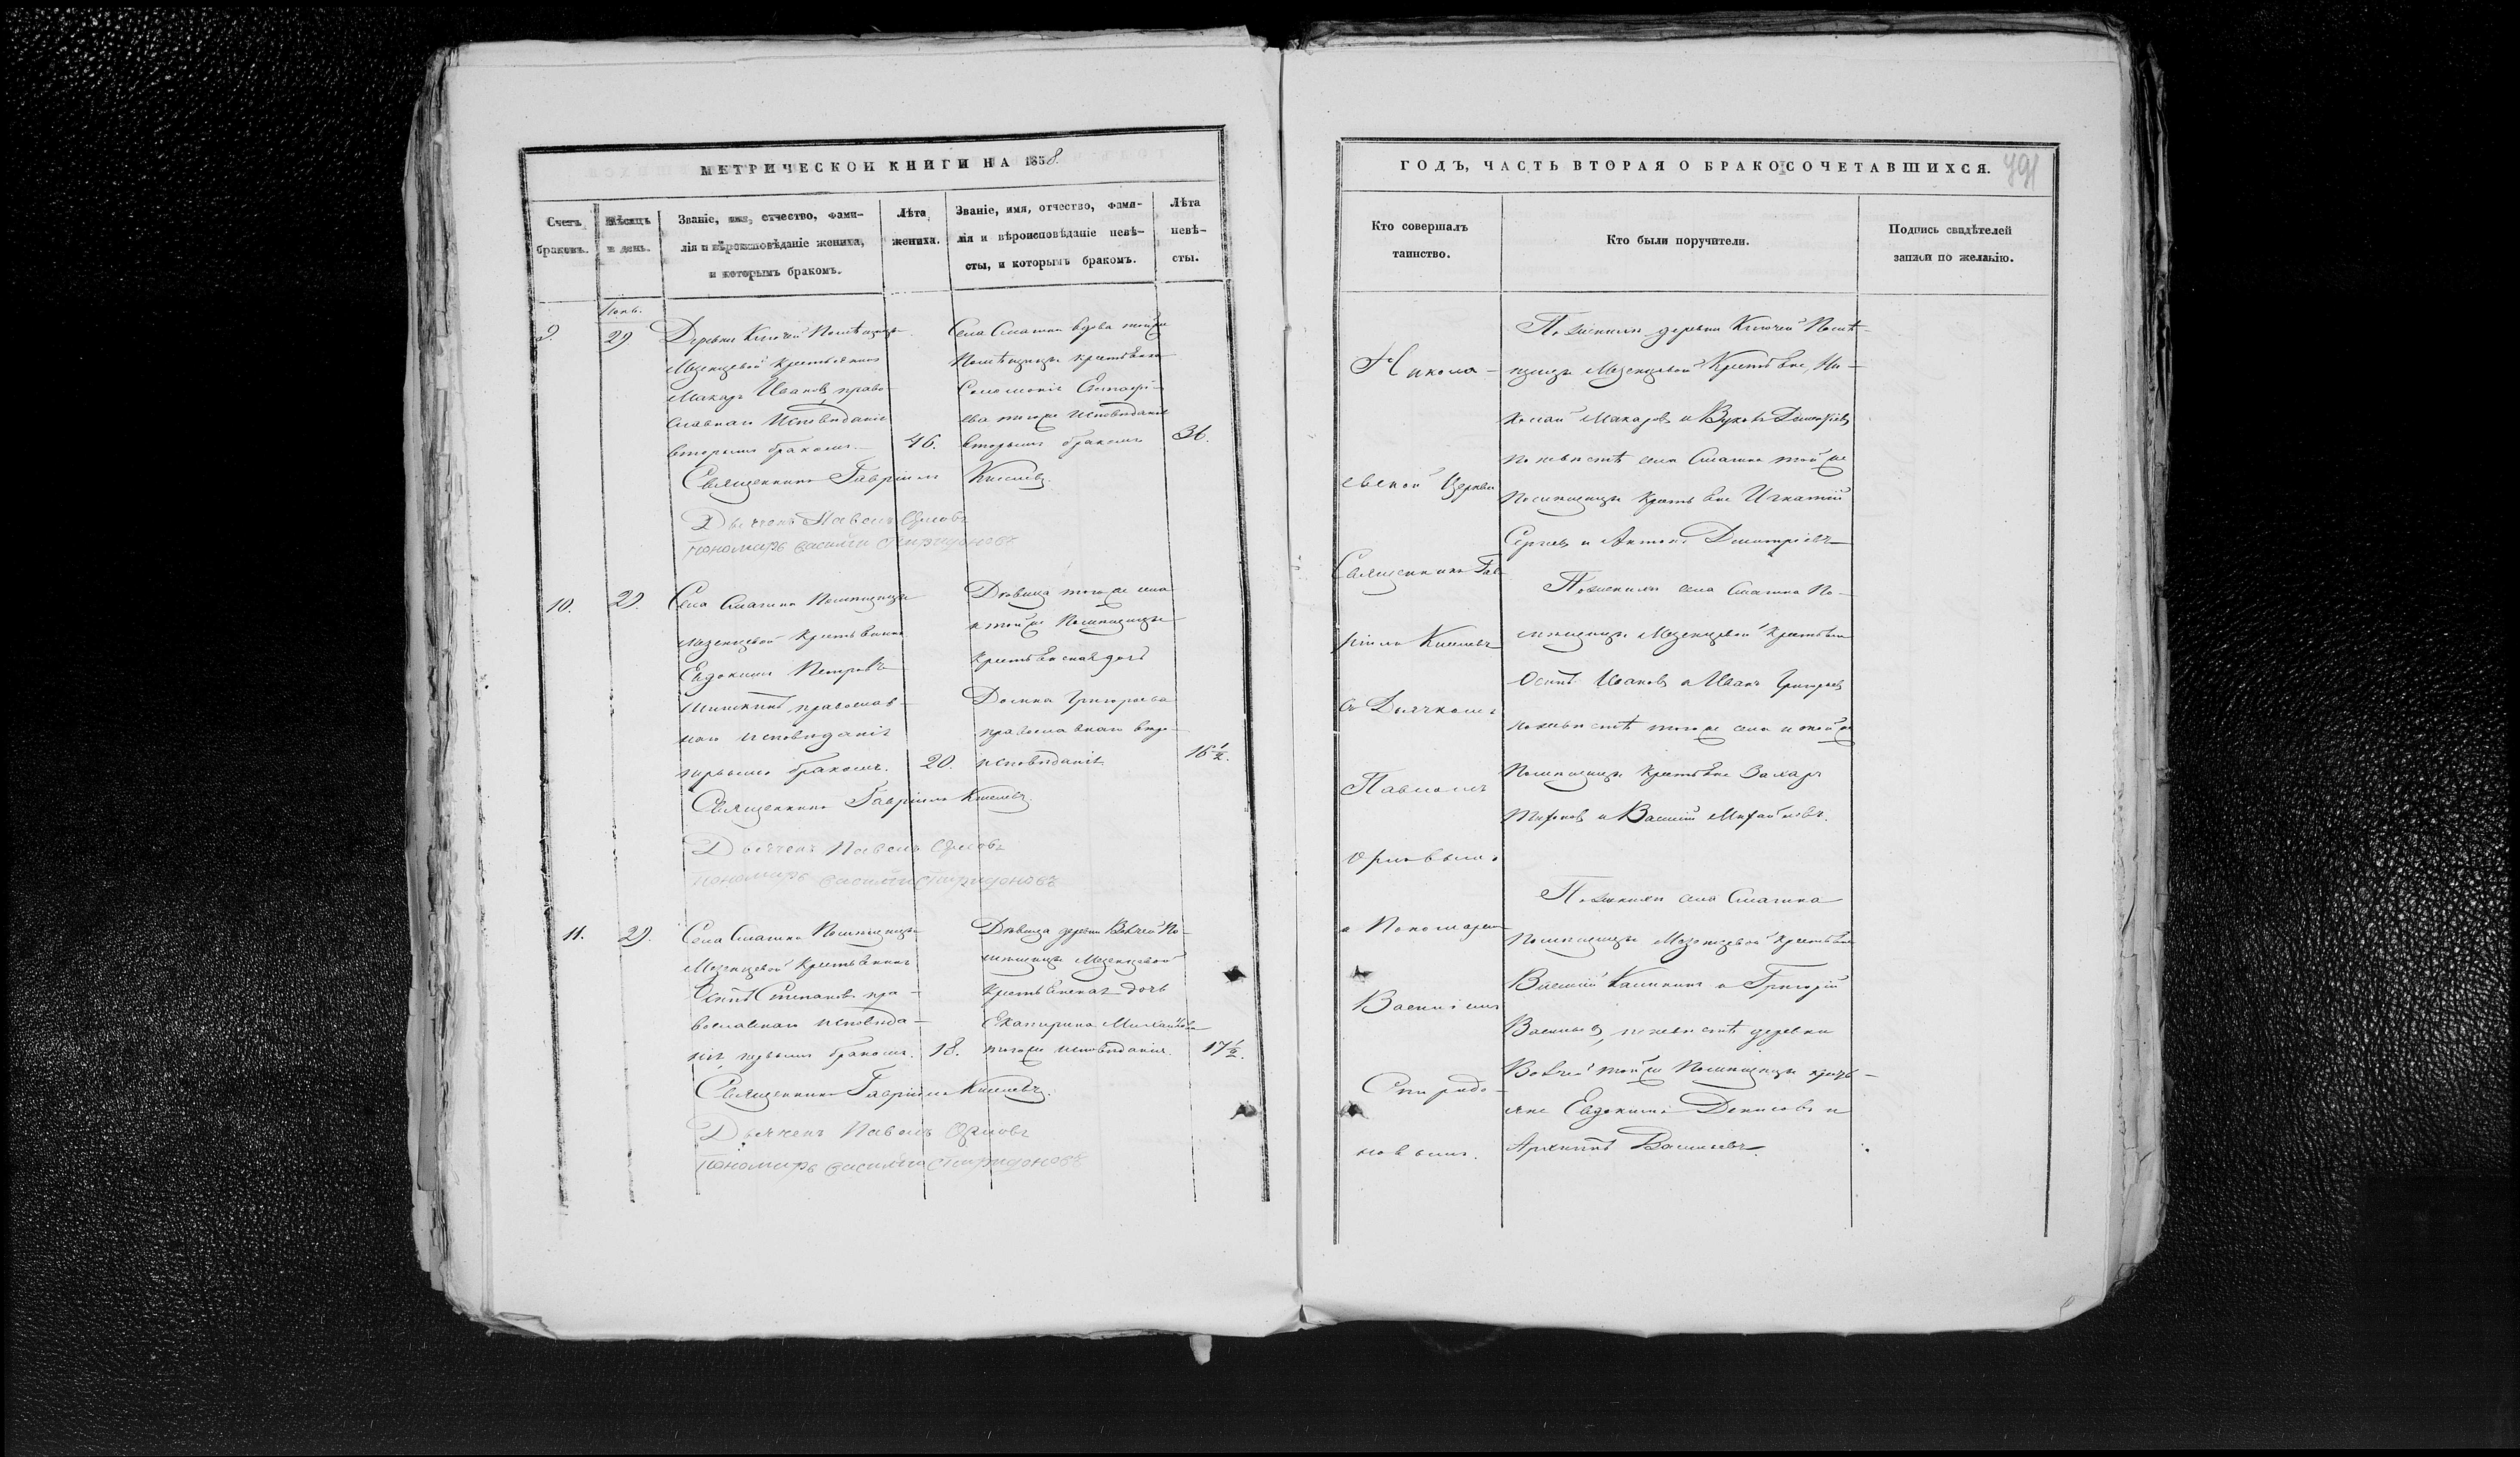 МЕТРИЧЕСКОЙ КНИГИ НА 1858.
Счетъ браковъ.
Мѣсяцъ и день.
Званіе, имя, отчество, фами-
лія и вѣроисповѣданіе жениха,
и которымъ бракомъ.
Лѣта
жениха.
Званіе, имя, отчество, фами-
лія и вѣроисповѣданіе невѣ-
сты, и которымъ бракомъ.
Лѣта
невѣ-
сты.
9.
29
Деревни Ключей Помѣщицы
Мезенцевой крестьянинъ
Макаръ Ивановъ право-
славнаго исповѣданія
вторымъ бракомъ
46.
Села Смагина вдова тойже
Помѣщицы крестьянка
Соломонія
ева тогоже исповѣданія
вторымъ бракомъ
36.
Священникъ Гавріилъ Киселевъ.
Дьячекъ Павелъ Орловъ
Пономарь Василій Спиридоновъ
10.
29.
Села Смагина Помѣщицы
Мезенцевой крестьянинъ
Евдокимъ Петровъ
Шишкинъ, православ-
наго исповѣданія
первымъ бракомъ.
20.
Дѣвица тогоже села
и тойже Помѣщицы
крестьянская дочь
Домна Григорьева
православнаго вѣро-
исповѣданія
16 1/2.
Священникъ Гавріилъ Киселевъ.
Дьячекъ Павелъ Орловъ
Пономарь Василій Спиридоновъ
11.
29.
Села Смагина Помѣщицы
Мезенцевой крестьянинъ
Осипъ Степановъ пра-
вославнаго исповѣда-
нія, первымъ бракомъ.
18.
Дѣвица деревни По-
мѣщицы Мезенцевой
крестьянская дочь
Екатерина Михайлова
тогоже исповѣданія.
17 1/2.
Священникъ Гавріилъ Киселевъ.
Дьячекъ Павелъ Орловъ
Пономарь Василій Спиридоновъ
ГОДЪ, ЧАСТЬ ВТОРАЯ О БРАКОСОЧЕТАВШИХСЯ.
791
Кто совершалъ
таинство.
Кто были поручители.
Подпись свидѣтелей
записи по желанію.
Никола-
евской Церкви
Священникъ Гав-
ріилъ Киселевъ
съ Дьячкомъ
Павломъ
Орловымъ
и Пономаремъ
Василіемъ
Спиридо-
новымъ.
По женихѣ деревни Ключей Помѣ-
щицы Мезенцевой крестьяне, Ни-
колай Макаровъ и
по невѣстѣ села Смагина тойже
Помѣщицы крестьяне Игнатій
Сергѣевъ и Антонъ Дмитріевъ
По женихѣ села Смагина По-
мѣщицы Мезенцевой крестьяне
Осипъ Ивановъ и Иванъ Григорьевъ
по невѣстѣ тогоже села и тойже
Помѣщицы крестьяне Захаръ
Тихоновъ и Василій Михайловъ.
По женихѣ села Смагина
Помѣщицы Мезенцевой крестьяне
Василій Калининъ и Григорій
Васильевъ, по невѣстѣ деревни
тойже Помѣщицы кресть-
яне Евдокимъ Денисовъ и
Архипъ Васильевъ.